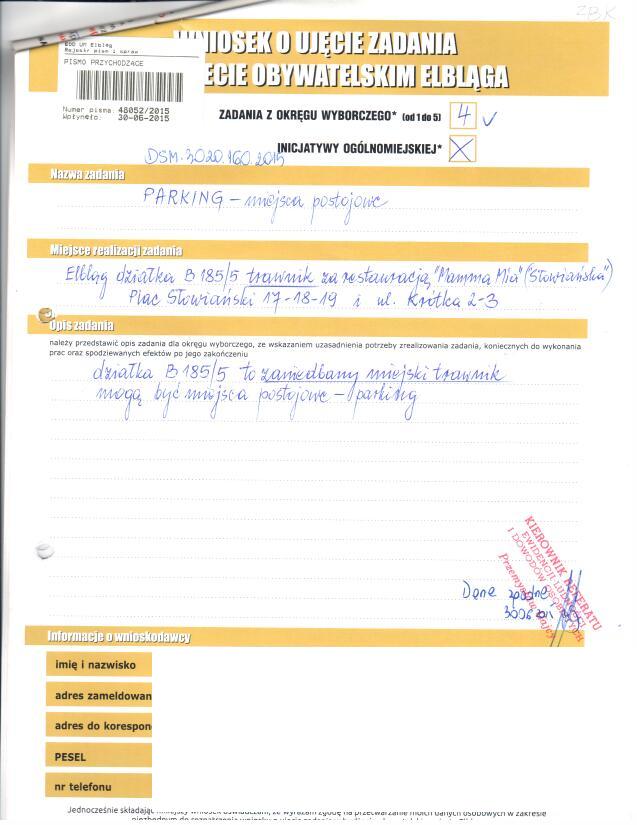 ZBK
EOD UM Elbląg
Rejestr pism i spraw
PISMO PRZYCHODZĄCE
Numer pisma: 48052/2015
Wpłynęło: 30-06-2015
WNIOSEK O UJĘCIE ZADANIA
ECIE OBYWATELSKIM ELBLĄGA
ZADANIA Z OKRĘGU WYBORCZEGO* (od 1 do 5) 4
INICJATYWY OGÓLNOMIEJSKIEJ* X
DSM.3020.160.2015
Nazwa zadania
PARKING – miejsca postojowe
Miejsce realizacji zadania
Elbląg działka B 185/5 trawnik za restauracją "Mamma Mia" ("Słowiańska")
Plac Słowiański 17-18-19 i ul. Krótka 2-3
Opis zadania
należy przedstawić opis zadania dla okręgu wyborczego, ze wskazaniem uzasadnienia potrzeby zrealizowania zadania, koniecznych do wykonania
prac oraz spodziewanych efektów po jego zakończeniu
działka B 185/5 to zaniedbany miejski trawnik
mogą być miejsca postojowe – parking
KIEROWNIK REFERATU
EWIDENCJI LUDNOŚCI
I DOWODÓW OSOBISTYCH
Dane zgodne
Informacje o wnioskodawcy
imię i nazwisko
adres zameldowan
adres do korespon
PESEL
nr telefonu
Jednocześnie składając niniejszy wniosek oświadczam, że wyrażam zgodę na przetwarzanie moich danych osobowych w zakresie